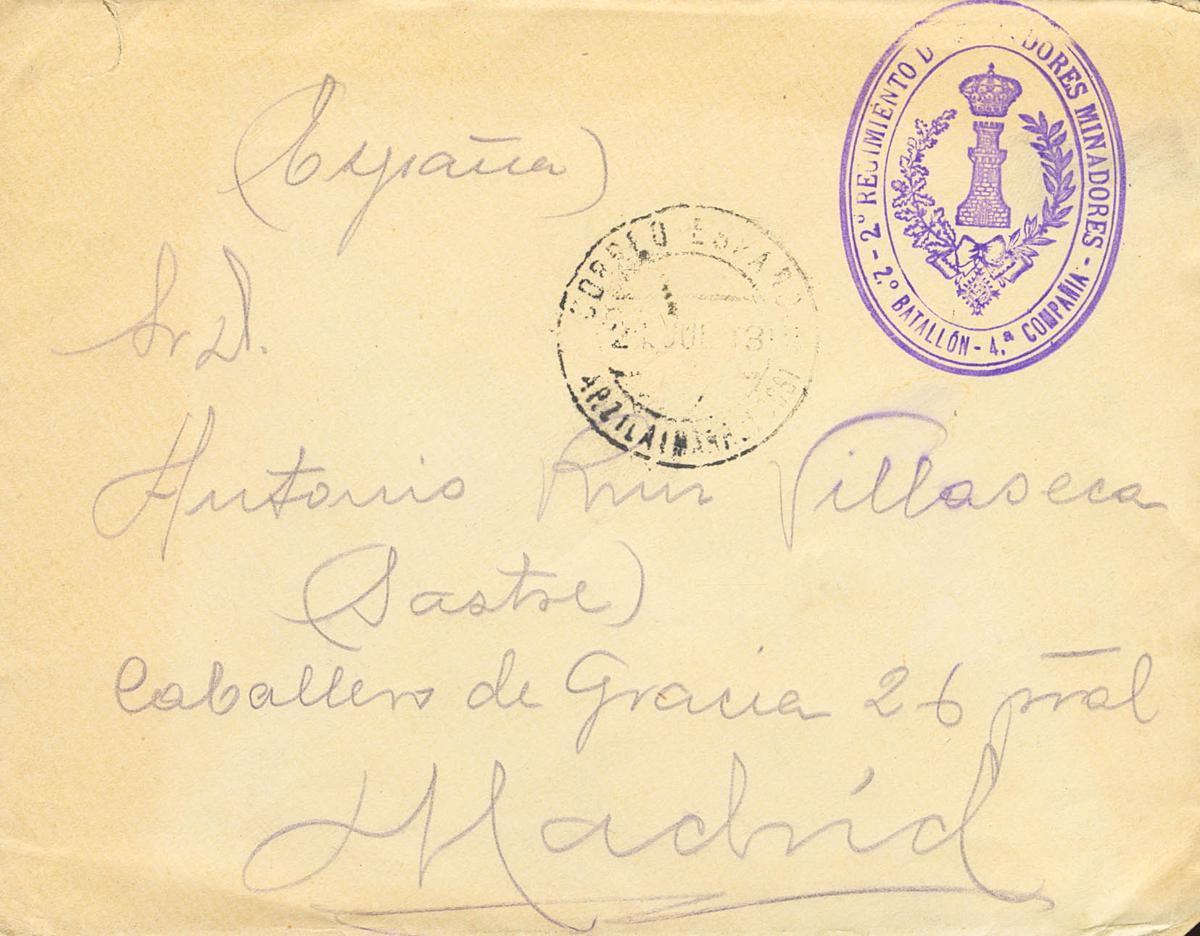 2º REGIMIENTO D DORES MINADORES
- 2.º BATALLÓN - 4.ª COMPAÑIA -
(España)
CORREO ESPAÑOL
JUL 13
ARZILA (MARRUECOS)
Sr D.
Antonio Ruiz Villaseca
(Sastre)
Caballero de Gracia 26 pral
Madrid